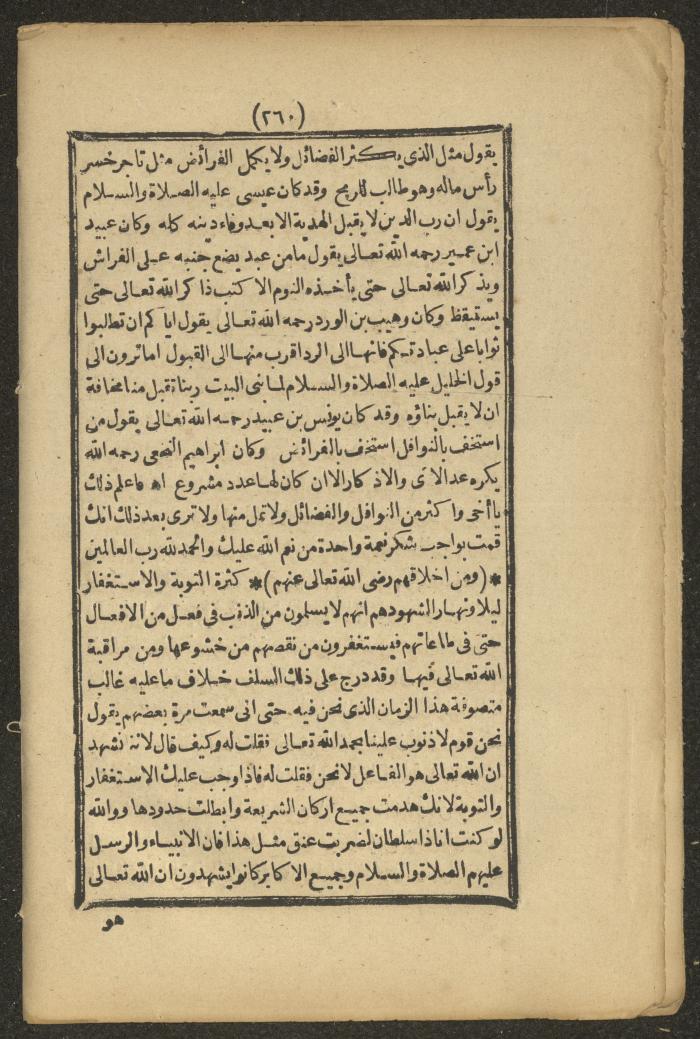 (٢٦٠)
يقول مثل الذي يكثر الفضائل ولا يكمل الفرائض مثل تاجر خسر
رأس ماله وهو طالب للربح وقد كان عيسى عليه الصلاة والسلام
يقول ان رب الدين لا يقبل الهدية الا بعد وفاء دينه كله وكان عبيد
ابن عمير رحمه الله تعالى يقول ما من عبد يضع جنبه على الفراش
ويذكر الله تعالى حتى يأخذه النوم الا كتب ذاكر الله تعالى حتى
يستيقظ وكان وهيب بن الورد رحمه الله تعالى يقول اياكم ان تطالبوا
ثوابا على عبادتكم فانها الى الرد اقرب منها الى القبول اما ترون الى
قول الخليل عليه الصلاة والسلام لما بنى البيت ربنا تقبل منا مخافة
ان لا يقبل بناؤه وقد كان يونس بن عبيد رحمه الله تعالى يقول من
استخف بالنوافل استخف بالفرائض وكان ابراهيم النخعى رحمه الله
يكره عد الآى والاذكار الا ان كان لها عدد مشروع اه فاعلم ذلك
يا أخى واكثر من النوافل والفضائل ولا تمل منها ولا ترى بعد ذلك انك
قمت بواجب شكر نعمة واحدة من نعم الله عليك والحمد لله رب العالمين
* (ومن اخلاقهم رضى الله تعالى عنهم) * كثرة التوبة والاستغفار
ليلا ونهارا لشهودهم انهم لا يسلمون من الذنب فى فعل من الافعال
حتى فى طاعاتهم فيستغفرون من نقصهم من خشوعها ومن مراقبة
الله تعالى فيها وقد درج على ذلك السلف خلاف ما عليه غالب
متصوفة هذا الزمان الذى نحن فيه حتى انى سمعت مرة بعضهم يقول
نحن قوم لا ذنوب علينا بحمد الله تعالى فقلت له وكيف قال لاننا نشهد
ان الله تعالى هو الفاعل لا نحن فقلت له فاذا وجب عليك الاستغفار
والتوبة لانك هدمت جميع اركان الشريعة وابطلت حدودها ووالله
لو كنت انا ذا سلطان لضربت عنق مثل هذا فان الانبياء والرسل
عليهم الصلاة والسلام وجميع الاكابر كانوا يشهدون ان الله تعالى
هو